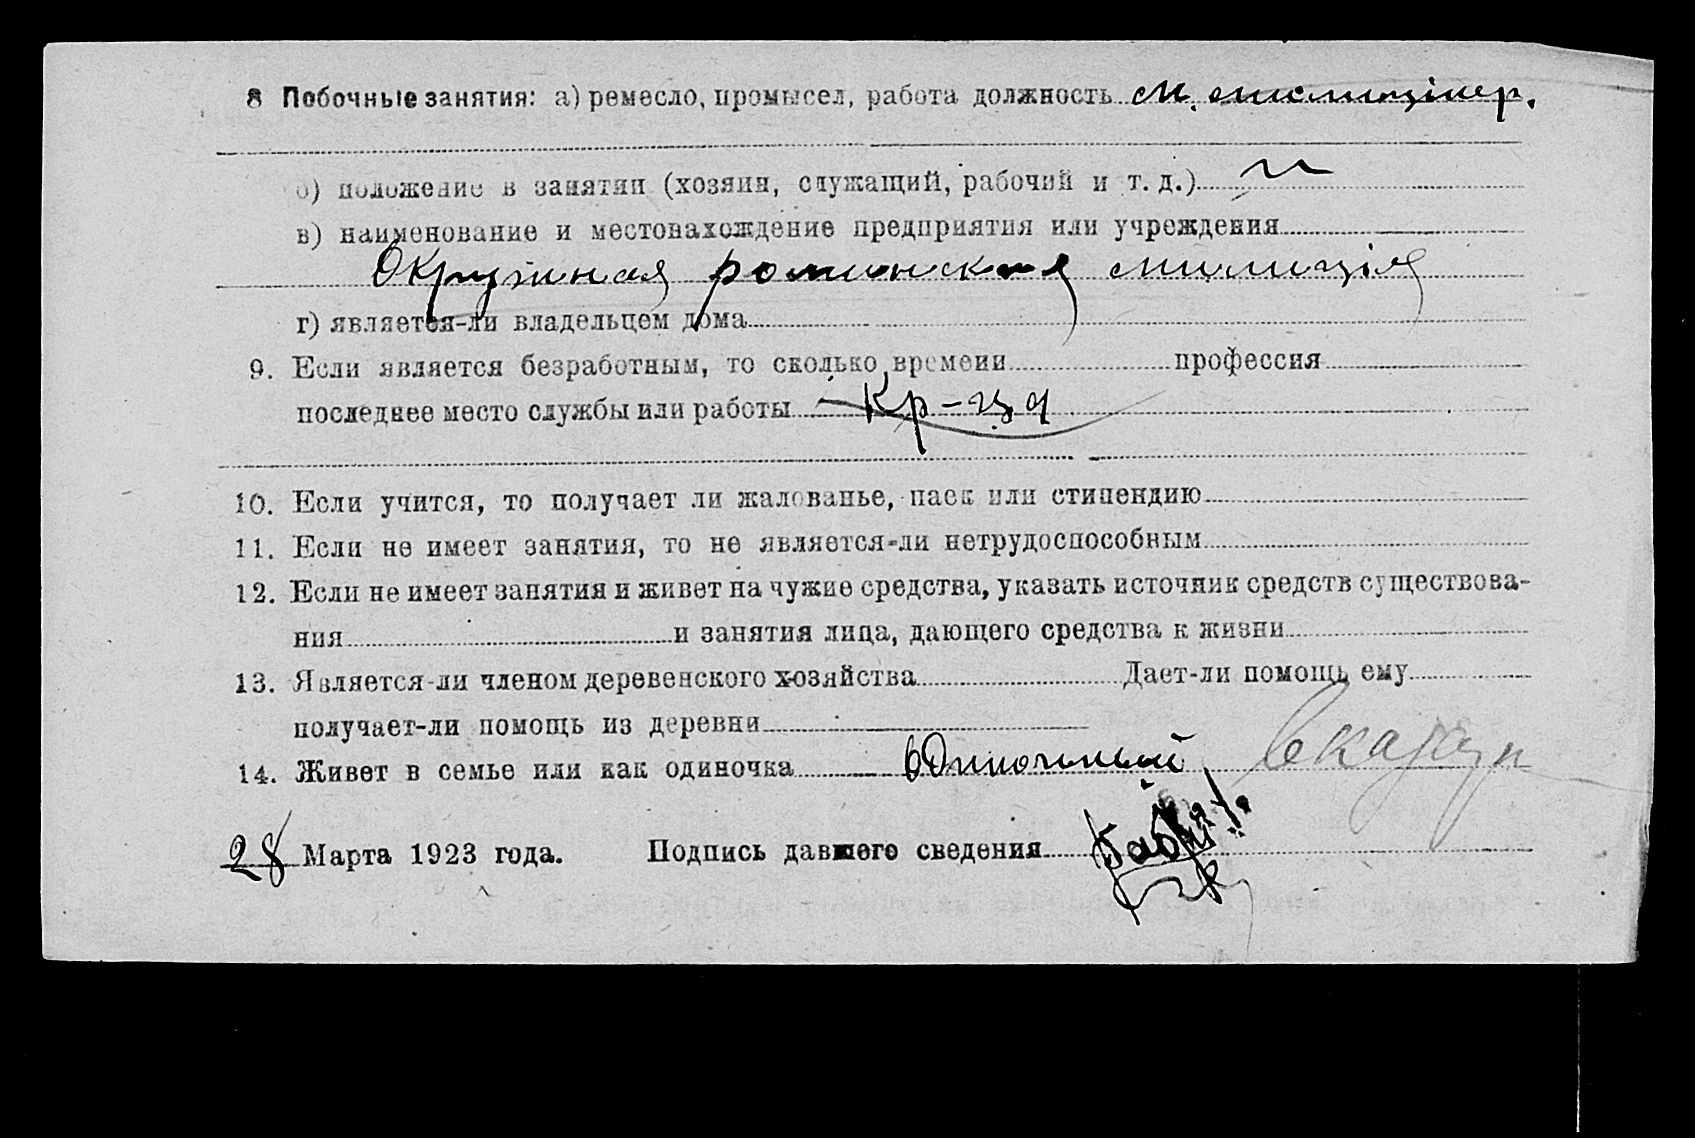 8 Побочные занятия: а) ремесло, промысел, работа должность м. милиціонер.
б) положение в занятии (хозяин, служащий, рабочий и т. д.)
в) наименование и местонахождение предприятия или учреждения
Окружная роменская милиція
г) является-ли владельцем дома
9. Если является безработным, то сколько времени профессия
последнее место службы или работы Кр-ца
10. Если учится, то получает ли жалованье, паек или стипендию
11. Если не имеет занятия, то не является-ли нетрудоспособным
12. Если не имеет занятия и живет на чужие средства, указать источник средств существова-
ния и занятия лица, дающего средства к жизни
13. Является-ли членом деревенского хозяйства Дает-ли помощь ему
получает-ли помощь из деревни
14. Живет в семье или как одиночка Одиночный
28 Марта 1923 года. Подпись давшего сведения